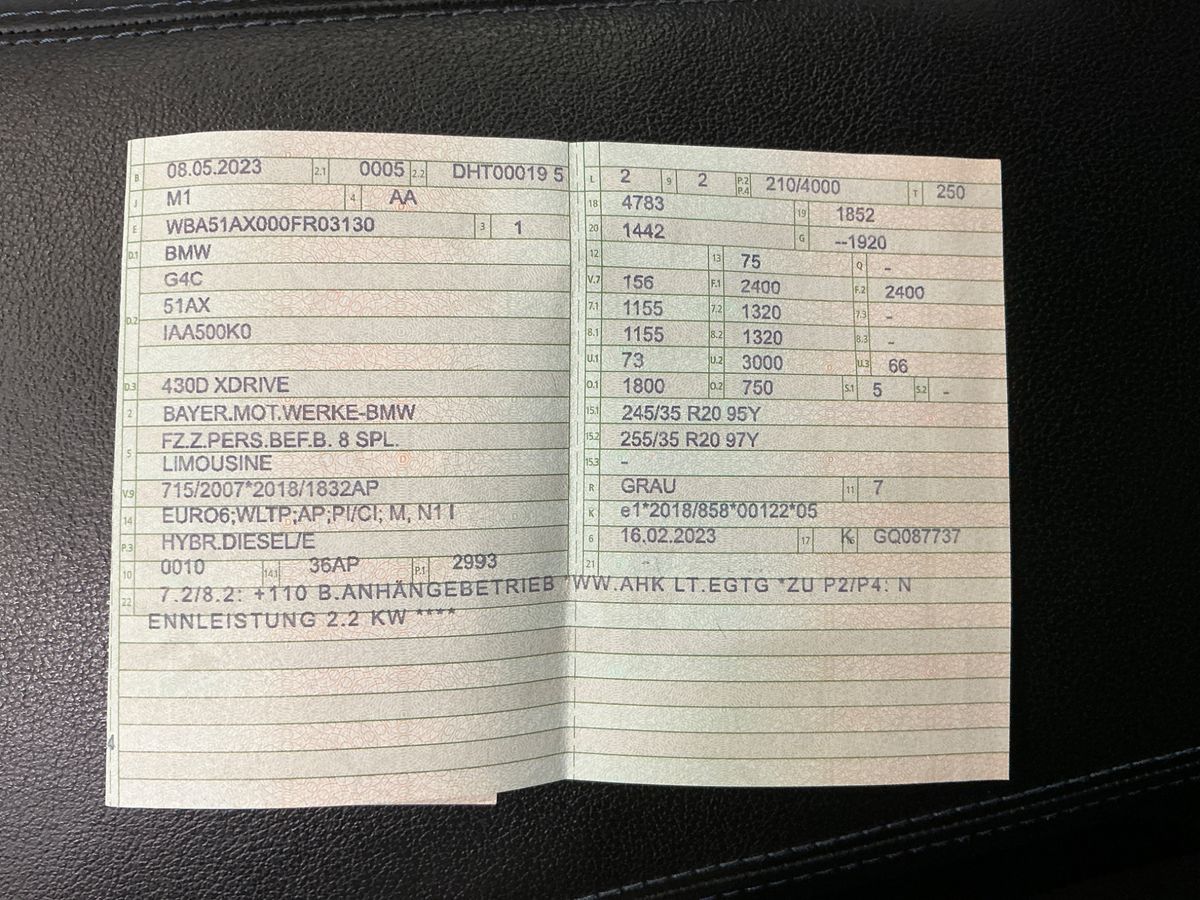 B 08.05.2023 2.1 0005 2.2 DHT00019 5
J M1 4 AA
E WBA51AX000FR03130 3 1
D.1 BMW
G4C
D.2 51AX
IAA500K0
D.3 430D XDRIVE
2 BAYER.MOT.WERKE-BMW
5 FZ.Z.PERS.BEF.B. 8 SPL.
LIMOUSINE
V.9 715/2007*2018/1832AP
14 EURO6;WLTP;AP;PI/CI; M, N1 I
P.3 HYBR.DIESEL/E
10 0010 14.1 36AP P.1 2993
L 2 9 2 P.2 P.4 210/4000 T 250
18 4783 19 1852
20 1442 G --1920
12 13 75 Q -
V.7 156 F.1 2400 F.2 2400
7.1 1155 7.2 1320 7.3 -
8.1 1155 8.2 1320 8.3 -
U.1 73 U.2 3000 U.3 66
O.1 1800 O.2 750 S.1 5 S.2 -
15.1 245/35 R20 95Y
15.2 255/35 R20 97Y
15.3 -
R GRAU 11 7
K e1*2018/858*00122*05
6 16.02.2023 17 K GQ087737
21 -
22 7.2/8.2: +110 B.ANHÄNGEBETRIEB *WW.AHK LT.EGTG *ZU P2/P4: N
ENNLEISTUNG 2.2 KW ****
4